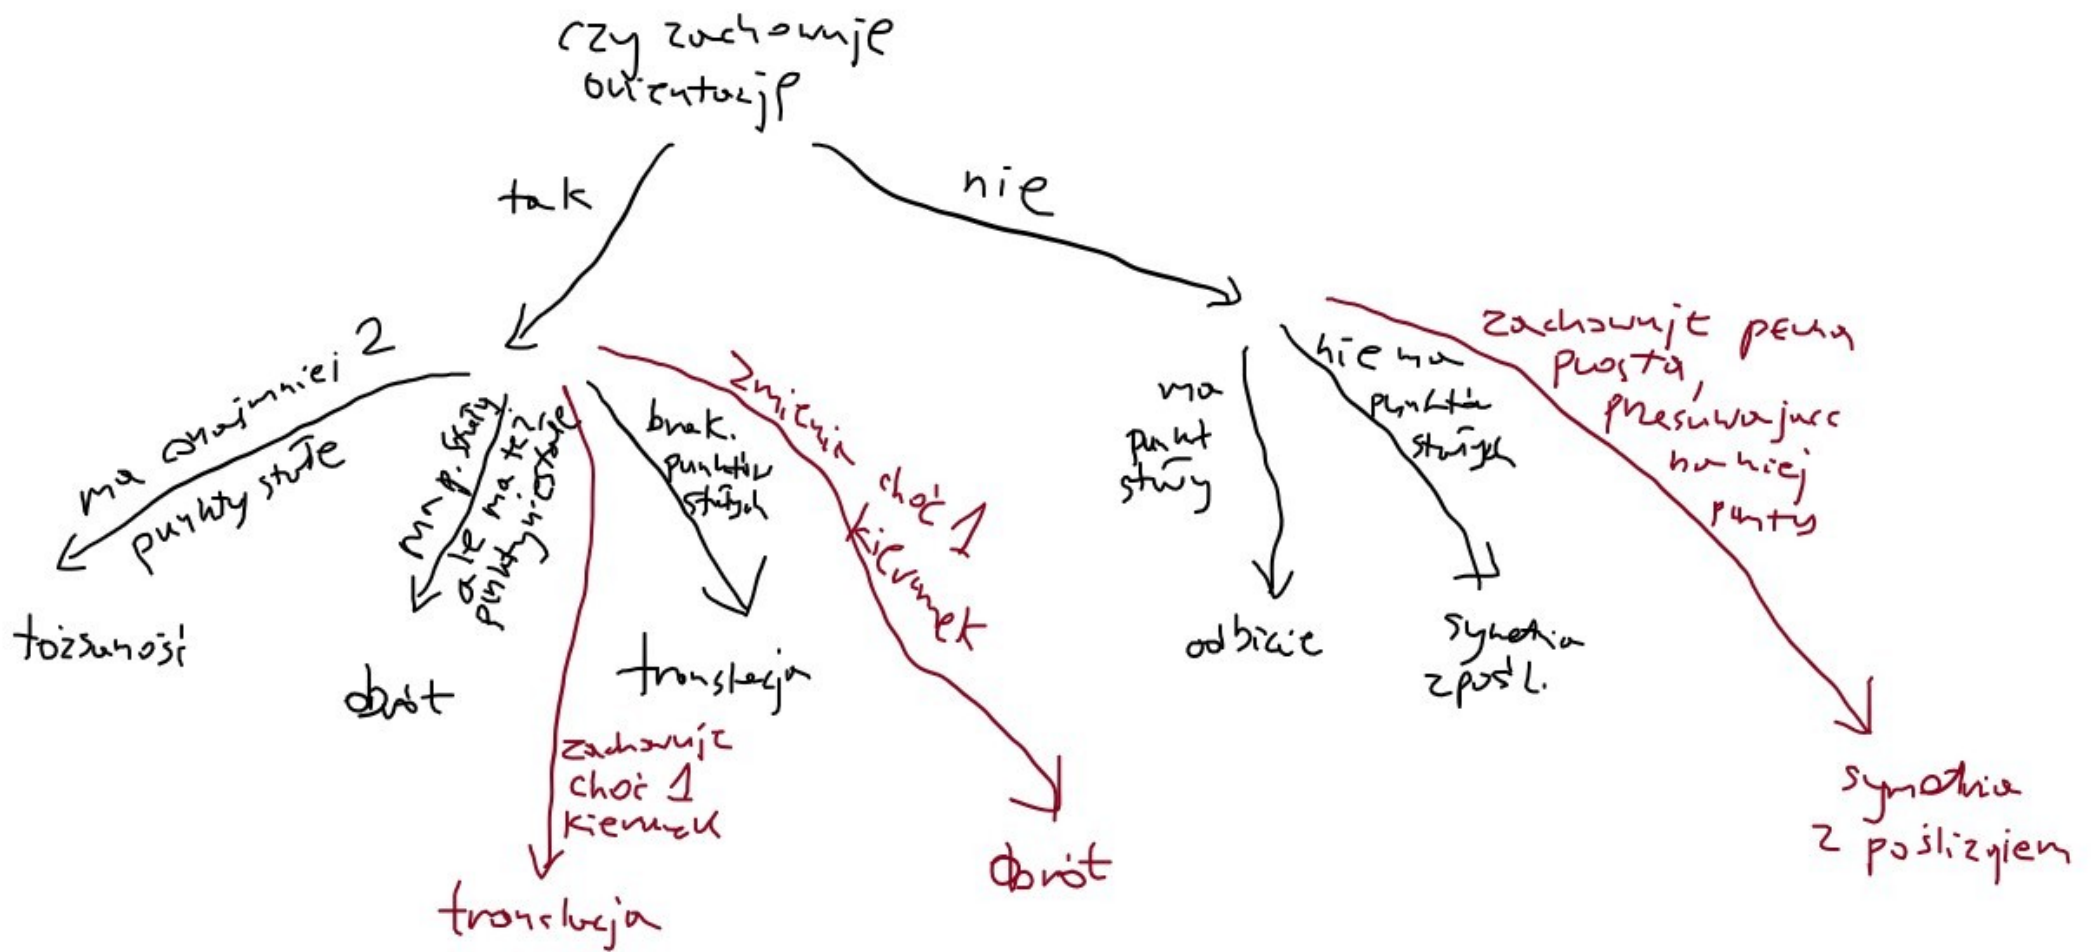 czy zachowuje
orientację
tak
nie
ma conajmniej 2
punkty stałe
ma p. stały
ale ma też
punkty niestałe
brak
punktów
stałych
zmienia choć 1
kierunek
ma
punkt
stały
nie ma
punktów
stałych
zachowuje pewną
prostą,
przesuwając
na niej
punty
tożsamość
obrót
translacja
odbicie
symetria
z pośl.
zachowuje
choć 1
kierunek
translacja
obrót
symetria
z poślizgiem